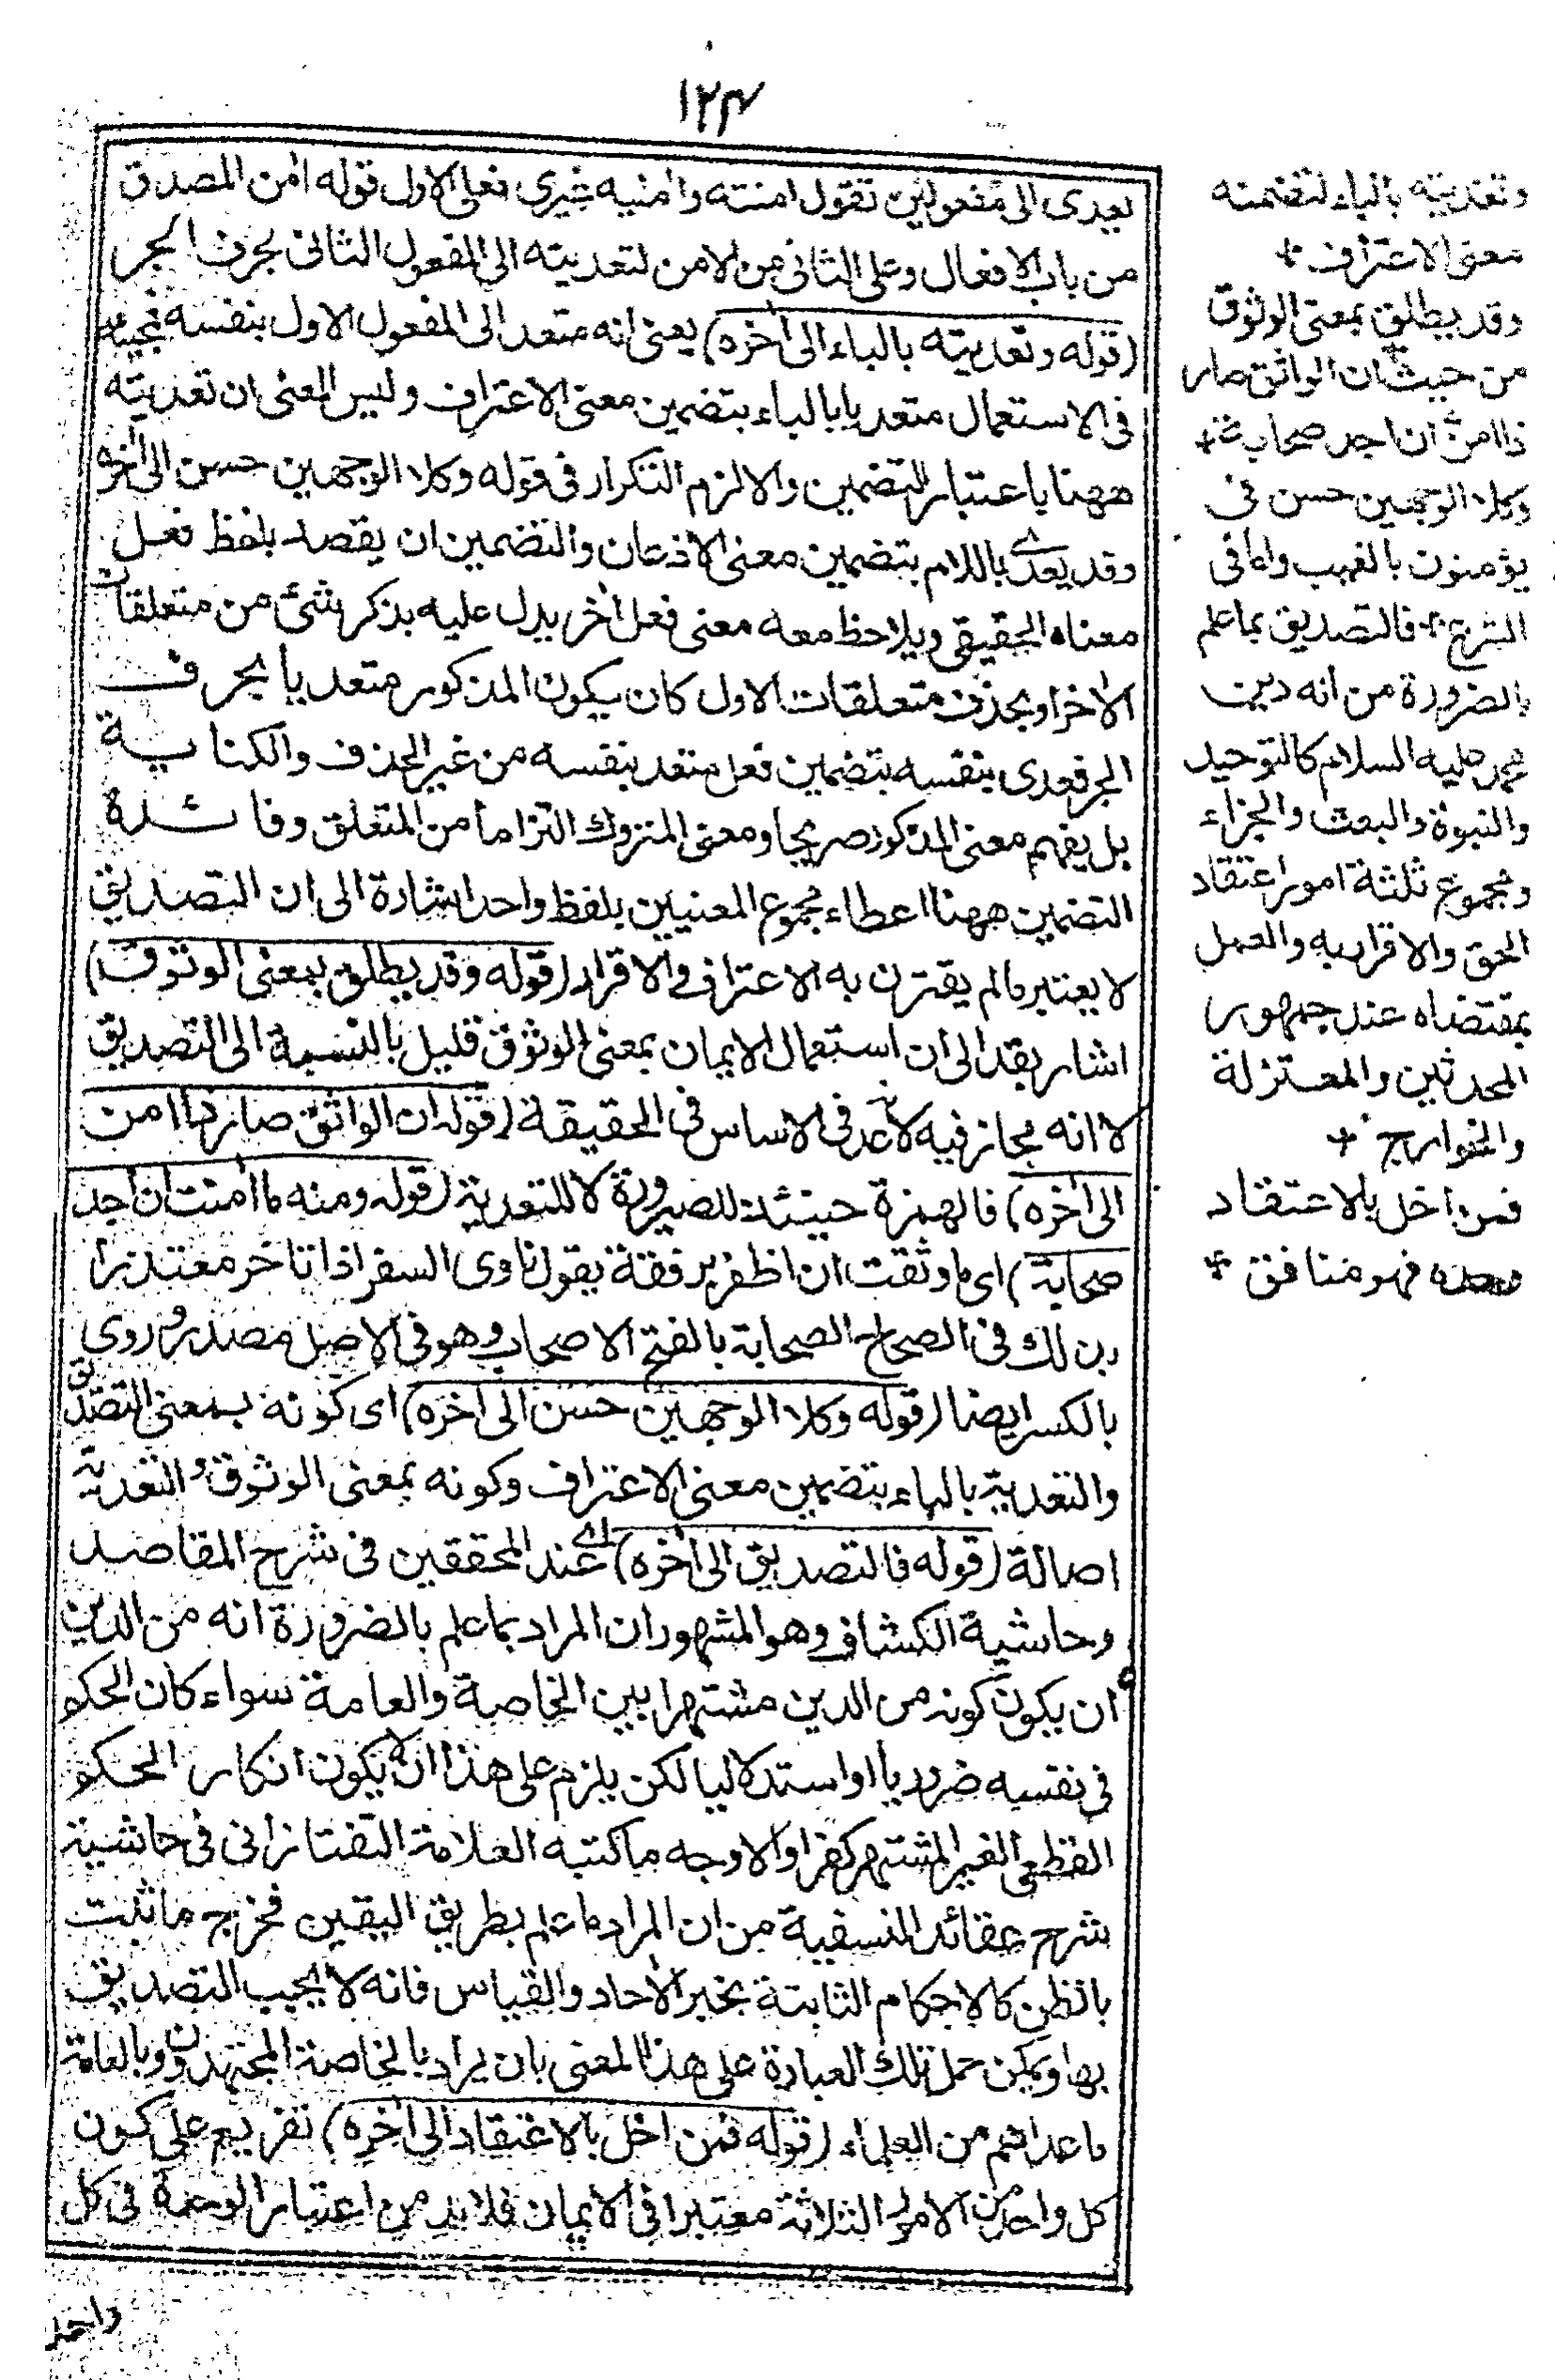 ۱۲۴
يعدى الى مفعولين تقول امنته وامنيه غيرى فعلى الاول قوله امن المصدق
من باب الافعال وعلى الثانى من الامن لتعديته الى المفعول الثانى بحرف الجر
(قوله وتعديته بالباء الى اخره) يعنى انه متعد الى المفعول الاول بنفسه فمجيئه
فى الاستعمال متعديا بالباء بتضمين معنى الاعتراف وليس المعنى ان تعديته
ههنا باعتبار التضمين والا لزم التكرار فى قوله وكلا الوجهين حسن الى اخره
وقد يعدى باللام بتضمين معنى الاذعان والتضمين ان يقصد بلفظ فعل
معناه الحقيقى ويلاحظ معه معنى فعل اخر يدل عليه بذكر شئ من متعلقات
الاخر او بحذف متعلقات الاول كان يكون المذكور متعديا بحرف
الجر فعدى بنفسه بتضمين فعل متعد بنفسه من غير الحذف والكناية
بل يفهم معنى المذكور صريحا ومعنى المتروك التزاما من المتعلق وفائدة
التضمين ههنا اعطاء مجموع المعنيين بلفظ واحد اشارة الى ان التصديق
لا يعتبر مالم يقترن به الاعتراف والاقرار (قوله وقد يطلق بمعنى الوثوق)
اشار بقد الى ان استعمال الايمان بمعنى الوثوق قليل بالنسبة الى التصديق
لا انه مجاز فيه لانه عد فى الاساس فى الحقيقة (قوله ان الواثق صار ذا امن
الى اخره) فالهمزة حينئذ للصيرورة لا للتعدية (قوله ومنه ما امنت ان اجد
صحابة) اى ما وثقت ان اظفر برفقة يقول ناوى السفر اذا تاخر معتذرا
بذلك فى الصحاح الصحابة بالفتح الاصحاب وهو فى الاصل مصدر وروى
بالكسر ايضا (قوله وكلا الوجهين حسن الى اخره) اى كونه بمعنى التصديق
والتعدية بالباء بتضمين معنى الاعتراف وكونه بمعنى الوثوق والتعدية
اصالة (قوله فالتصديق الى اخره) اى عند المحققين فى شرح المقاصد
وحاشية الكشاف وهو المشهور ان المراد بما علم بالضرورة انه من الدين
ان يكون كونه من الدين مشتهرا بين الخاصة والعامة سواء كان الحكم
فى نفسه ضروريا او استدلاليا لكن يلزم على هذا ان لا يكون انكار الحكم
القطعى الغير المشتهر كفرا والاوجه ما كتبه العلامة التفتازانى فى حاشية
شرح عقائد النسفية من ان المراد ما علم بطريق اليقين فخرج ما ثبت
بالظن كالاحكام الثابتة بخبر الاحاد والقياس فانه لا يجب التصديق
بها ويمكن حمل تلك العبارة على هذا المعنى بان يراد بالخاصة المجتهدون وبالعامة
ما عداهم من العلماء (قوله فمن اخل بالاعتقاد الى اخره) تفريع على كون
كل واحد من الامور الثلاثة معتبرا فى الايمان فلابد من اعتبار الوحدة فى كل
واحد
وتعديته بالباء لتضمنه
معنى الاعتراف +
وقد يطلق بمعنى الوثوق
من حيث ان الواثق صار
ذا امن ان اجد صحابة +
وكلا الوجهين حسن فى
يؤمنون بالغيب واما فى
الشرع + فالتصديق بما علم
بالضرورة من انه دين
محمد عليه السلام كالتوحيد
والنبوة والبعث والجزاء
ومجموع ثلثة امور اعتقاد
الحق والاقرار به والعمل
بمقتضاه عند جمهور
المحدثين والمعتزلة
والخوارج +
فمن اخل بالاعتقاد
وحده فهو منافق +